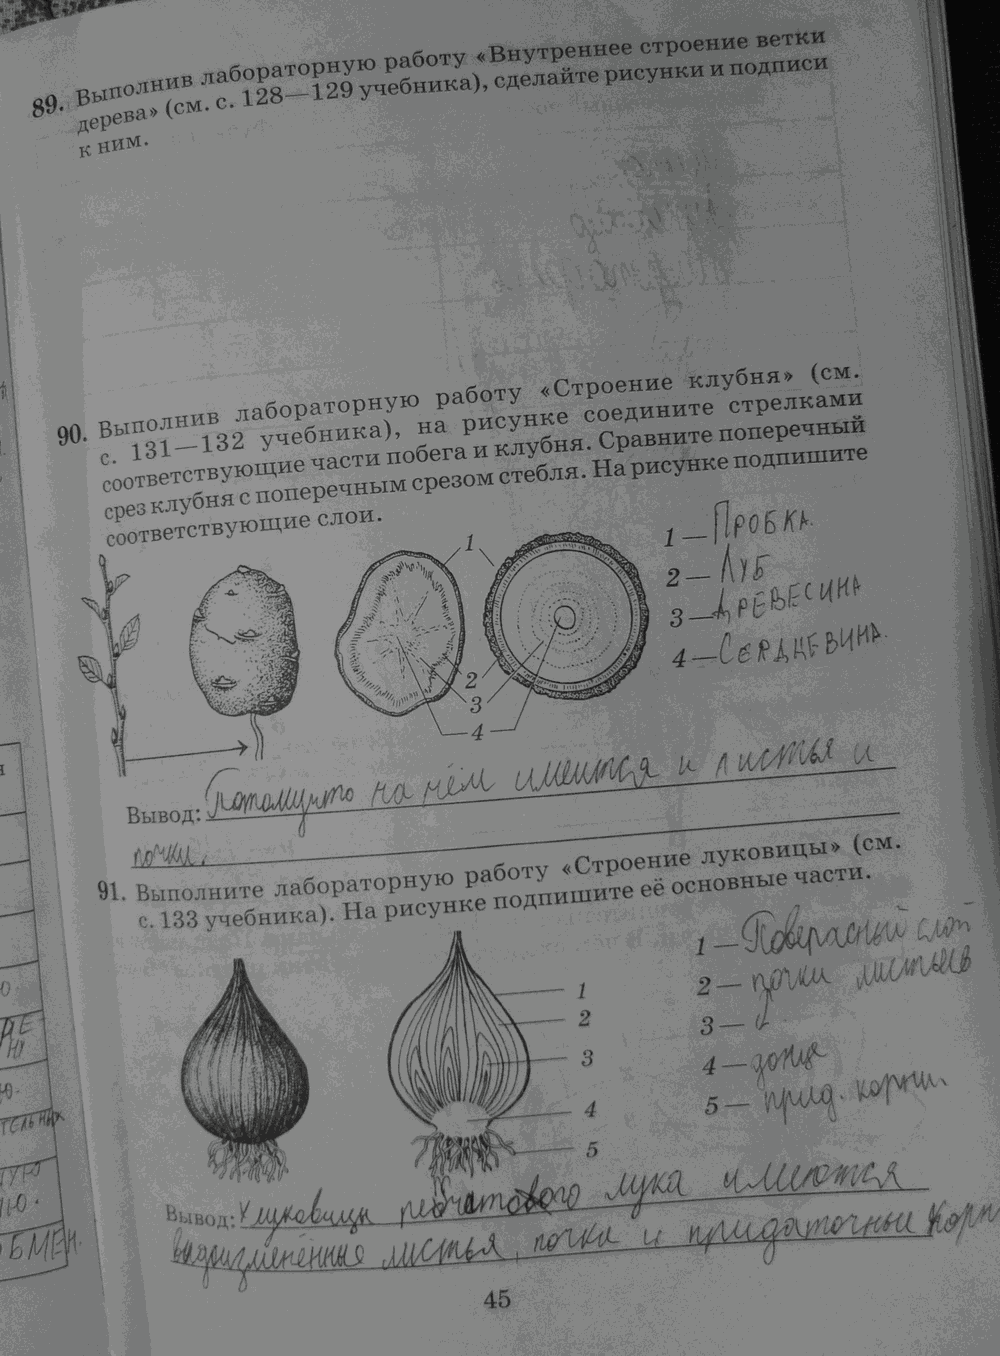 89. Выполнив лабораторную работу «Внутреннее строение ветки
дерева» (см. с. 128—129 учебника), сделайте рисунки и подписи
к ним.
90. Выполнив лабораторную работу «Строение клубня» (см.
с. 131—132 учебника), на рисунке соедините стрелками
соответствующие части побега и клубня. Сравните поперечный
срез клубня с поперечным срезом стебля. На рисунке подпишите
соответствующие слои.
1
2
3
4
1 — ПРОБКА.
2 — ЛУБ
3 — ДРЕВЕСИНА
4 — СЕРДЦЕВИНА.
Вывод: Потомучто на нём имеится и листья и
почки.
91. Выполните лабораторную работу «Строение луковицы» (см.
с. 133 учебника). На рисунке подпишите её основные части.
1
2
3
4
5
1 — слой
2 — почки листьев
3 —
4 — донце
5 — прид. корни.
Вывод: У луковицы репчатового лука имеются
видоизменённые листья, почки и придаточные корни
45